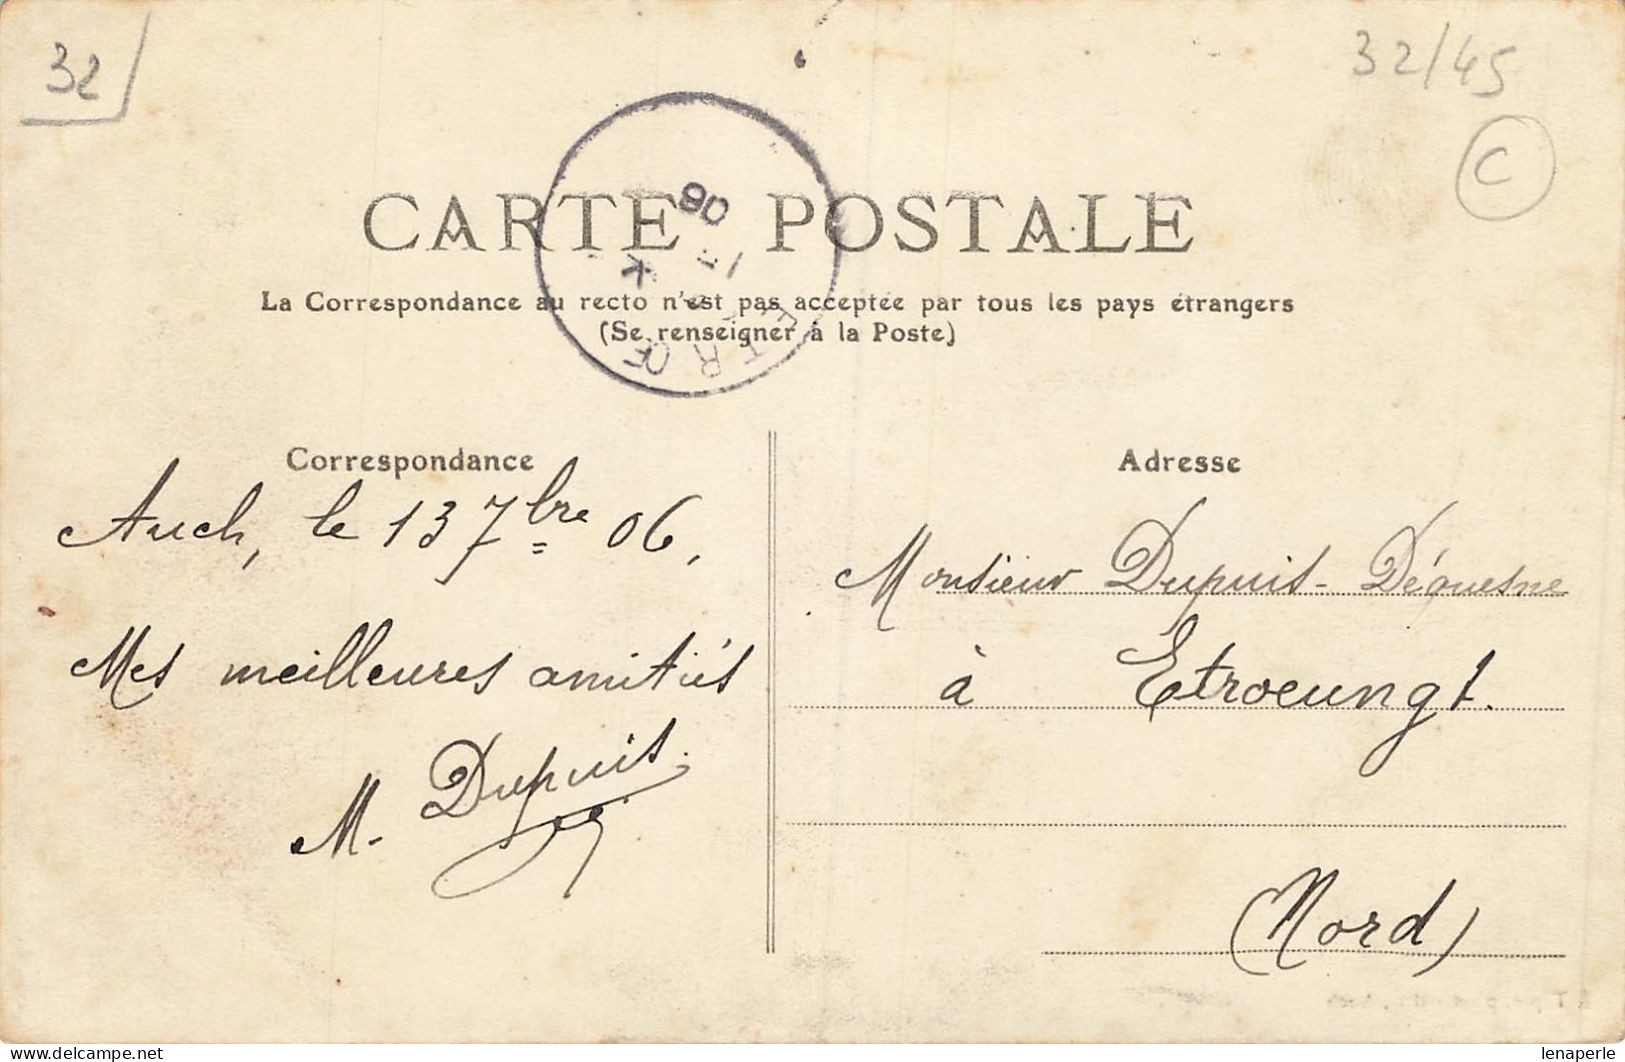 32
32/45
C
CARTE POSTALE
La Correspondance au recto n'est pas acceptée par tous les pays étrangers
(Se renseigner à la Poste)
Correspondance
Auch, le 13 7bre 06,
Mes meilleures amitiés
M. Dupuis
Adresse
Monsieur Dupuis-Déquesne
à Etroeungt.
(Nord)
lenaperle